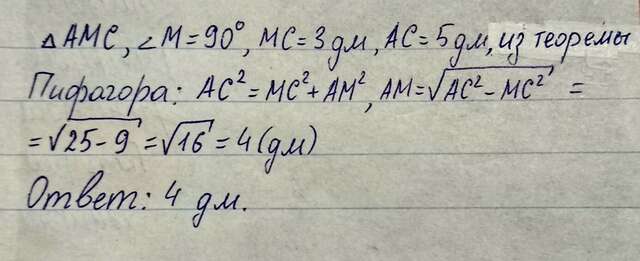 △AMC, ∠M=90°, MC=3дм, AC=5дм, из теоремы
Пифагора: AC²=MC²+AM², AM=√AC²-MC² =
=√25-9=√16=4(дм)
Ответ: 4 дм.